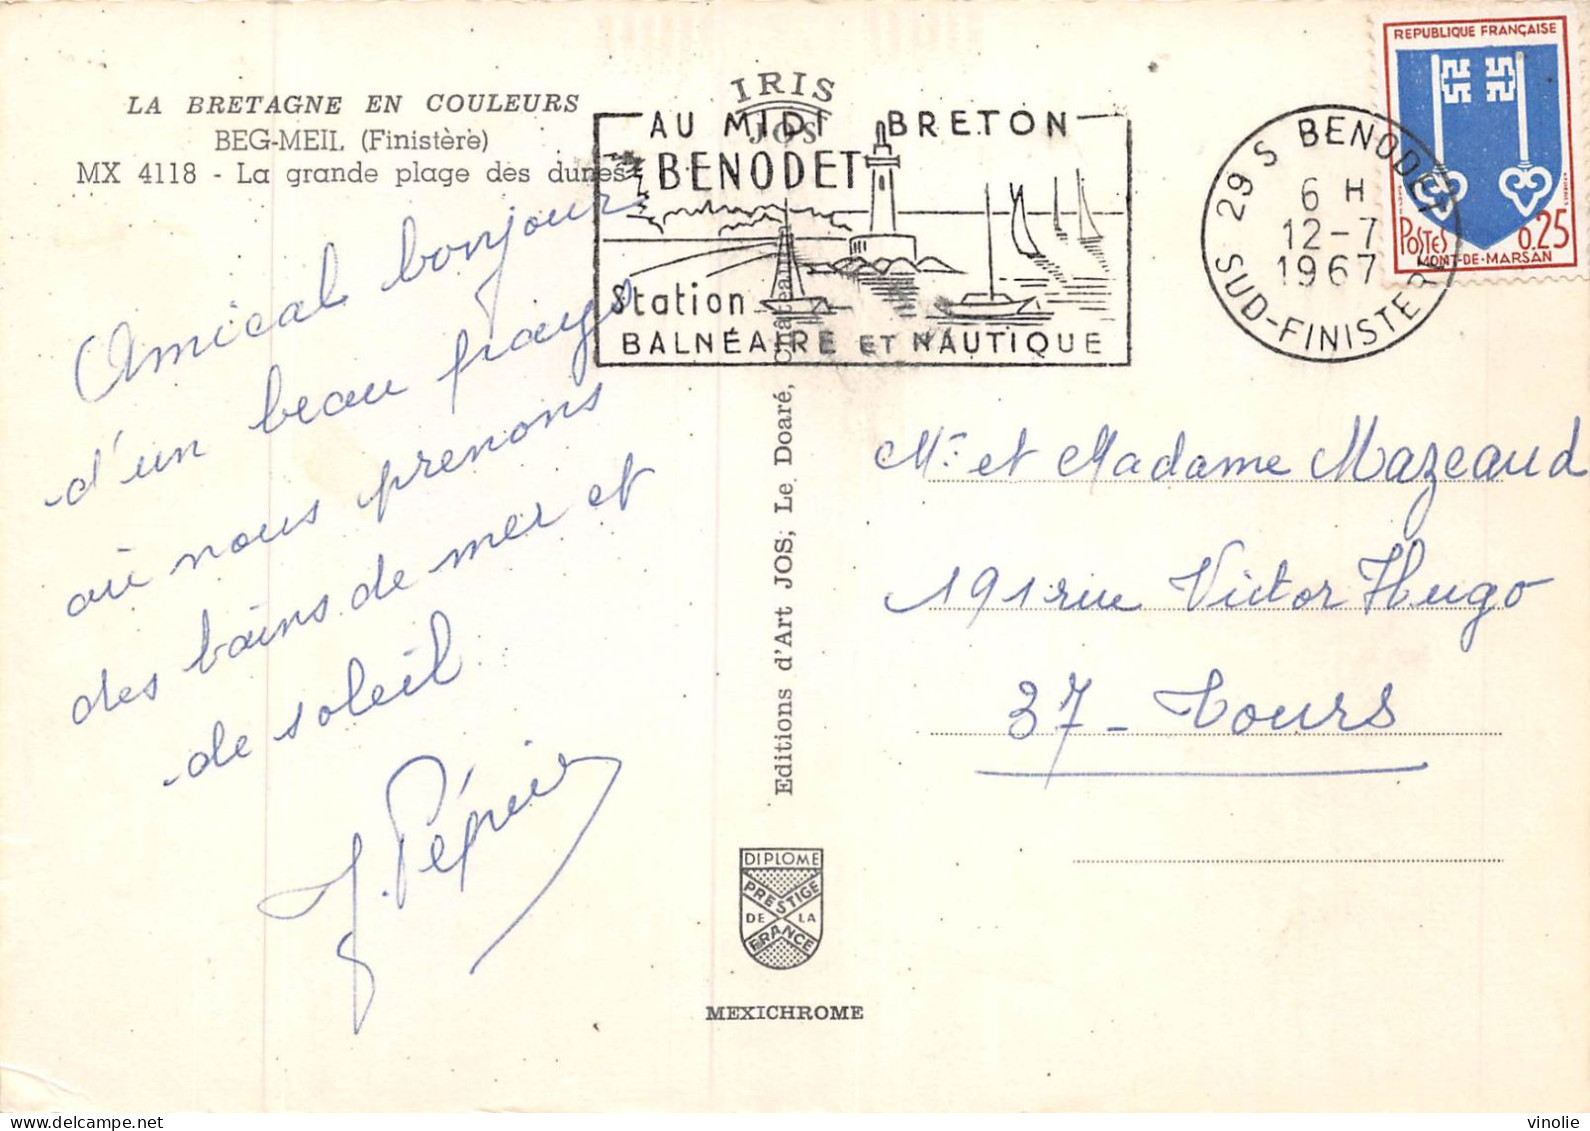 LA BRETAGNE EN COULEURS
BEG-MEIL (Finistère)
MX 4118 - La grande plage des dunes
IRIS
JOS
AU MIDI BRETON
BENODET
Station
BALNÉAIRE ET NAUTIQUE
29 S BENODET
6 H
12-7
1967
SUD-FINISTERE
REPUBLIQUE FRANÇAISE
POSTES
0,25
MONT-DE-MARSAN
Amical bonjour
d'un beau pays
où nous prenons
des bains de mer et
de soleil
J. Pépin
Editions d'Art JOS, Le Doaré,
Mr et Madame Mazeaud
191 rue Victor Hugo
37 - Tours
DIPLOME
PRESTIGE
DE LA
FRANCE
MEXICHROME
vinolie